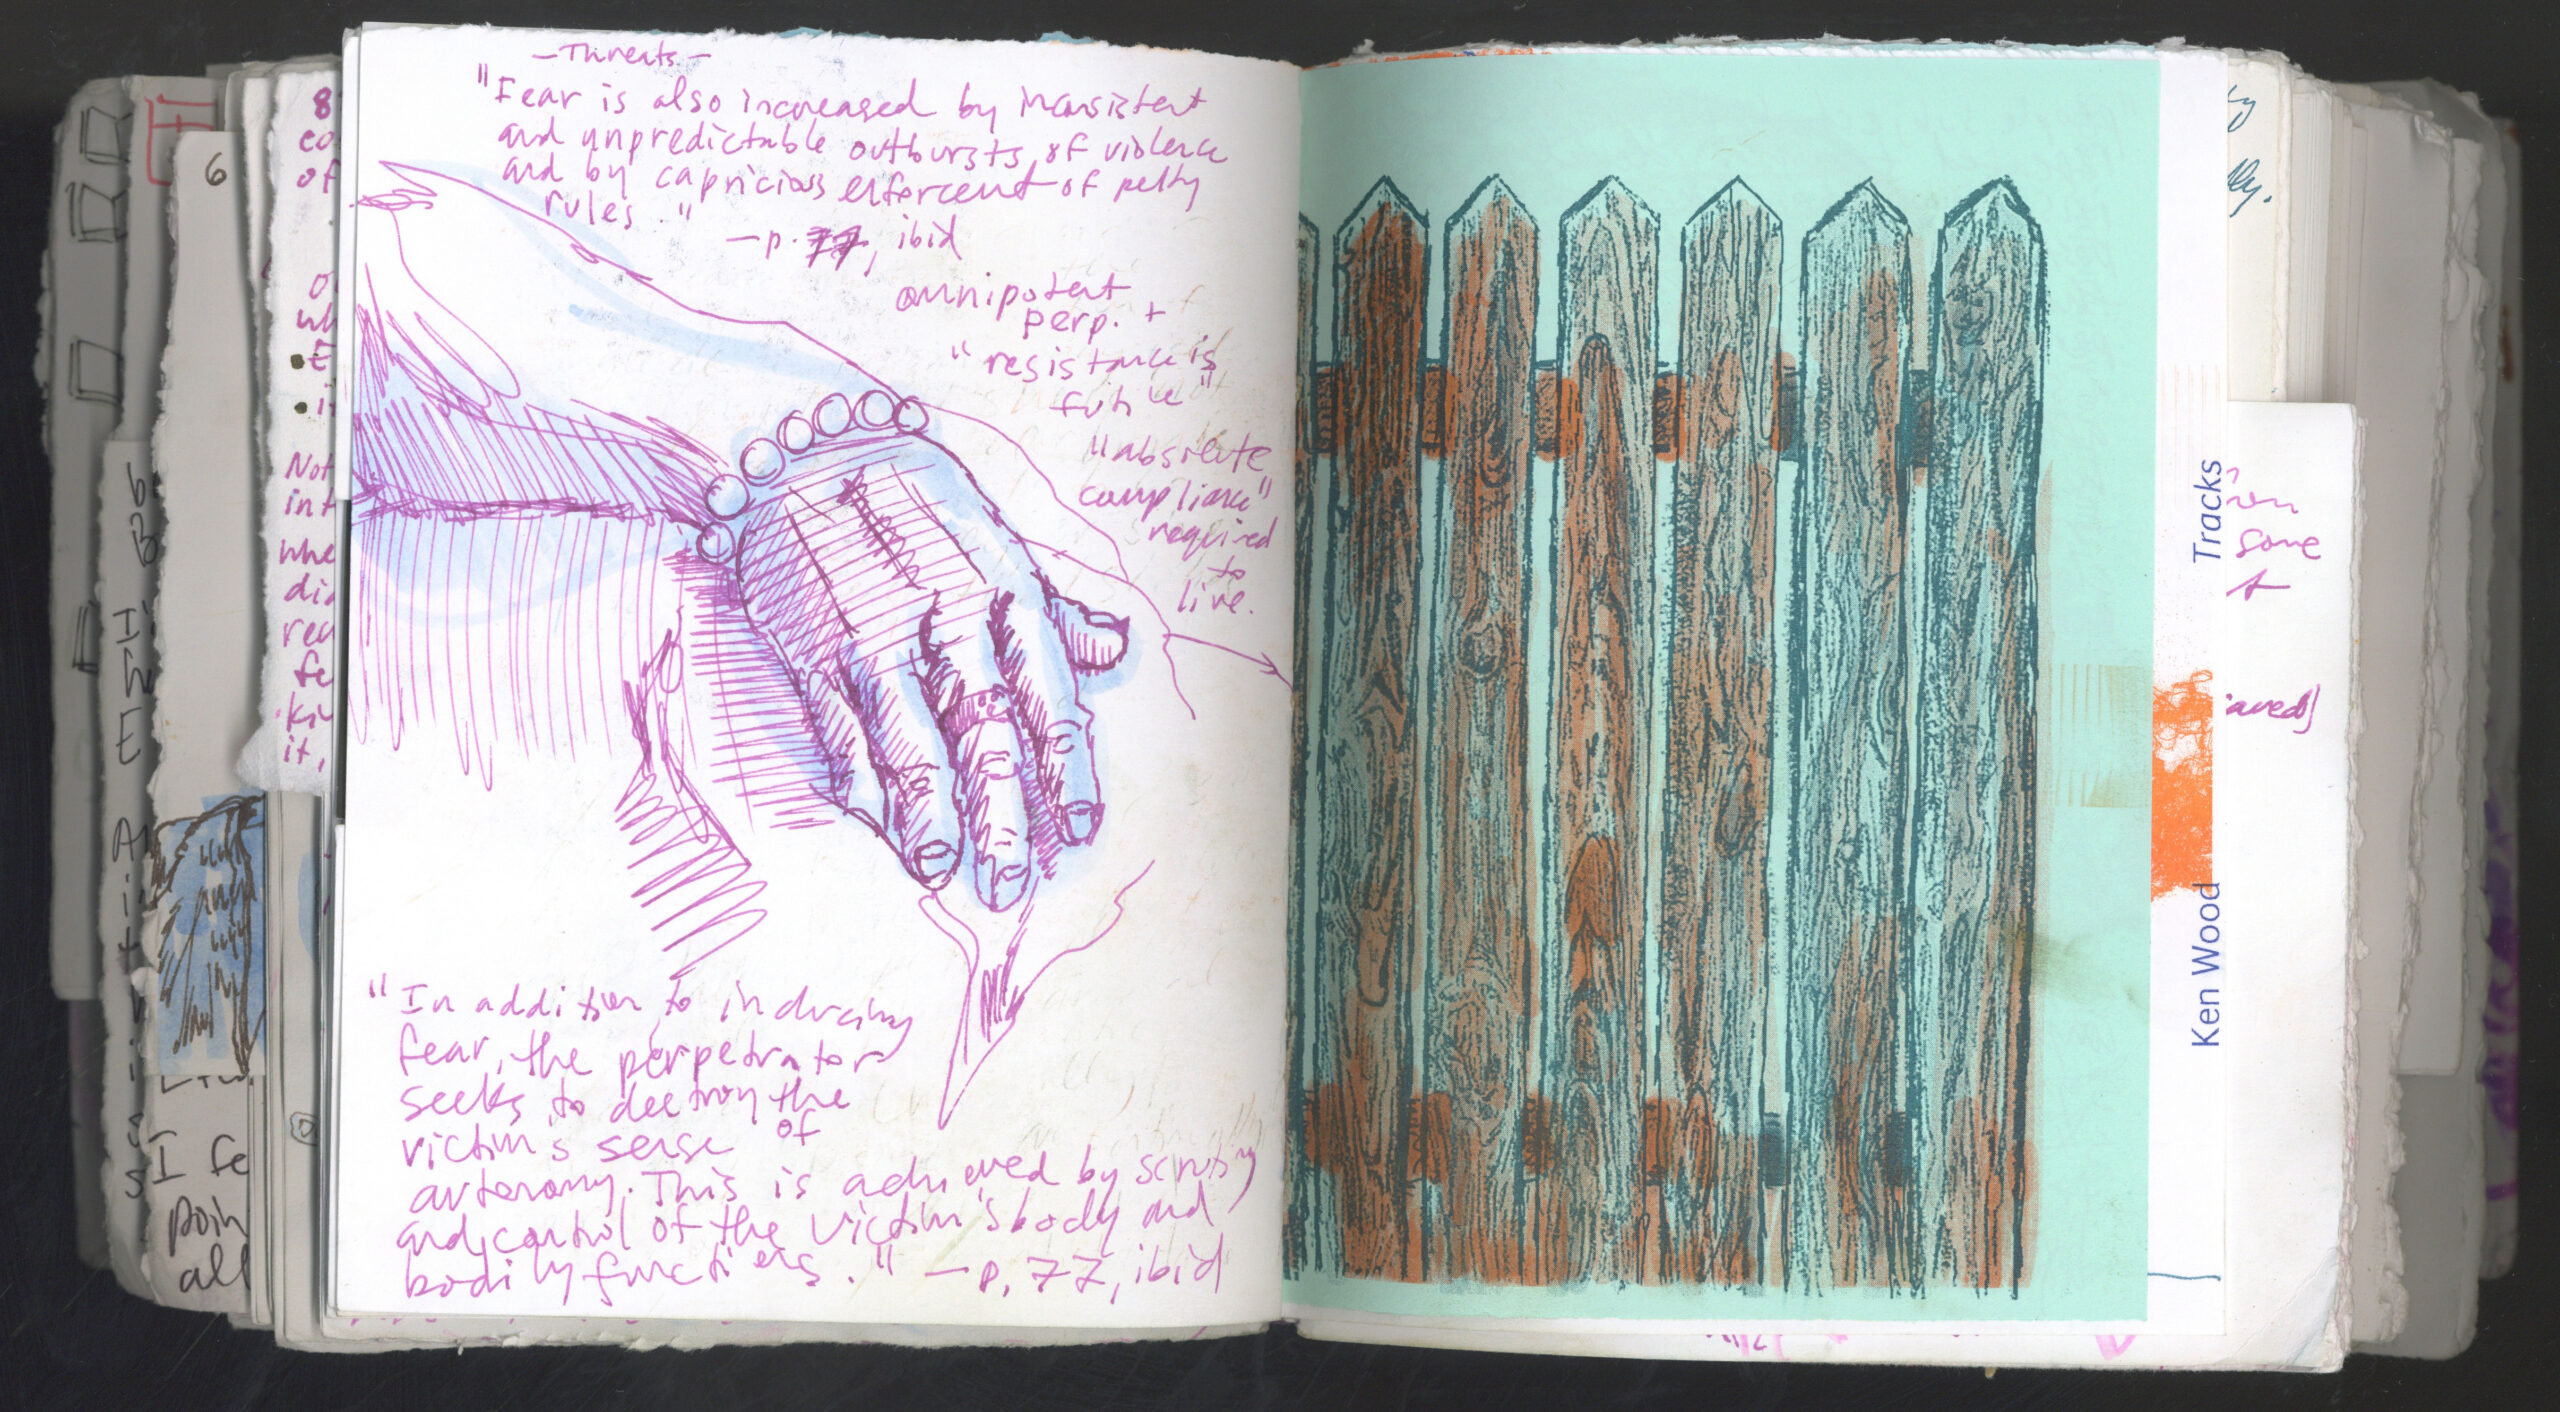 -Threats-
"Fear is also increased by inconsistent
and unpredictable outbursts of violence
and by capricious enforcement of petty
rules."
-p. 77, ibid
omnipotent
perp. +
"resistance is
futile"
"absolute
compliance"
required
to
live.
"In addition to inducing
fear, the perpetrator
seeks to destroy the
victim's sense of
autonomy. This is achieved by scrutiny
and control of the victim's body and
bodily functions." -p. 77, ibid
6
8
co
of
wh
Not
int
whe
did
rea
fe
it,
I fe
poin
all
Tracks
Ken Wood
ly.
some